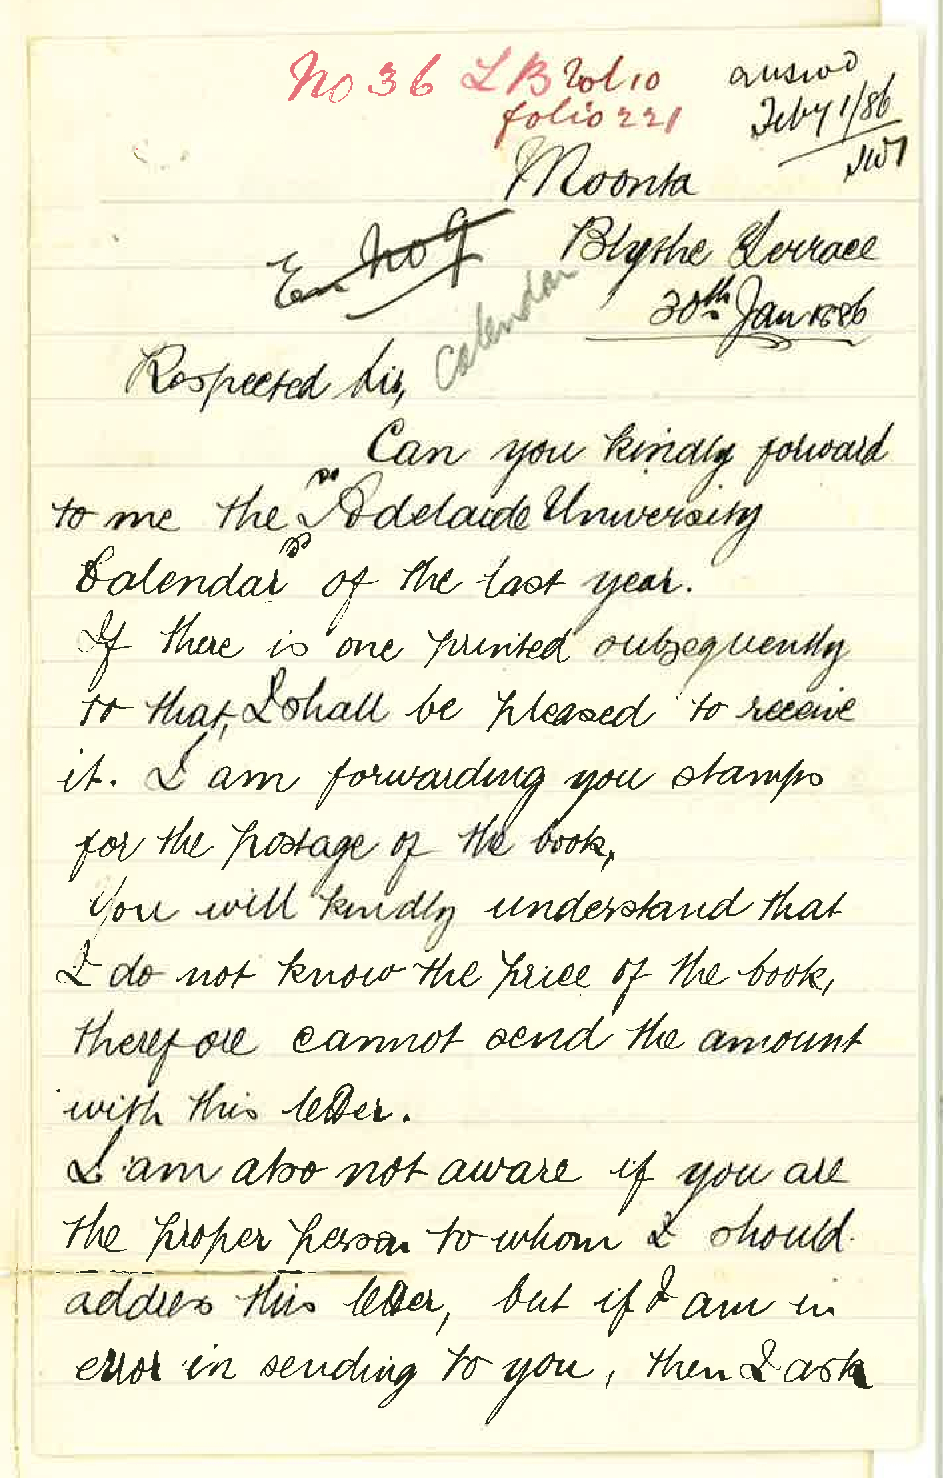 No 36 LB Vol 10
folio 221
answd
Feby 1/86
Moonta
En No 9
Blythe Terrace
30th Jan 1886
calendar
Respected Sir,
Can you kindly forward
to me the "Adelaide University
Calendar" of the last year.
If there is one printed subsequently
to that, I shall be pleased to receive
it. I am forwarding you stamps
for the postage of the book,
You will kindly understand that
I do not know the price of the book,
therefore cannot send the amount
with this letter.
I am also not aware if you are
the proper person to whom I should
address this letter, but if I am in
error in sending to you, then I ask